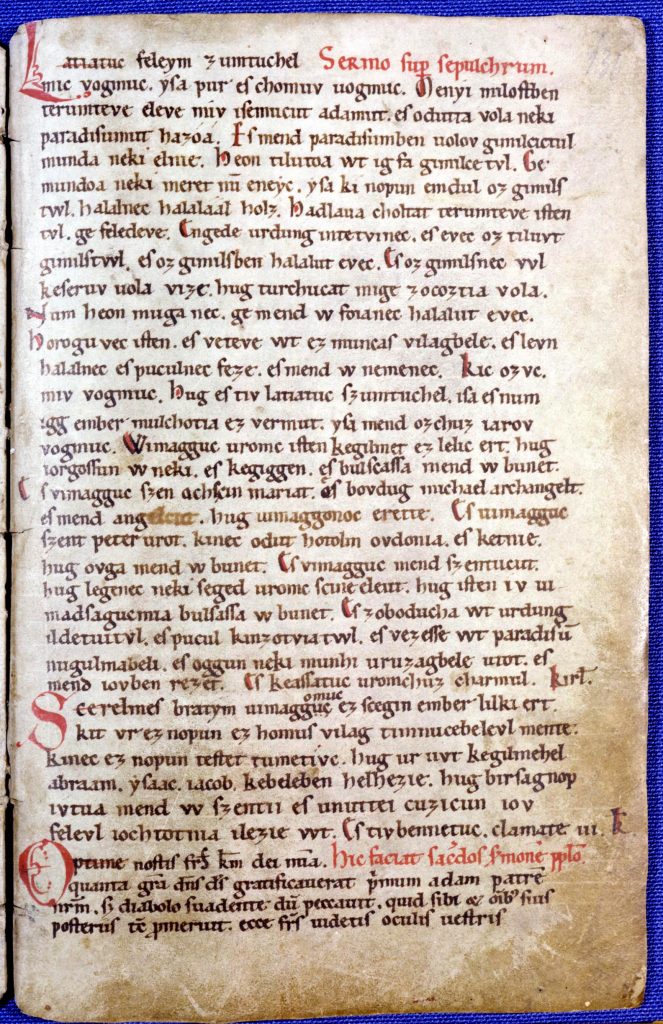 Latiatuc feleym zumtuchel Sermo sup sepulchrum.
mic vogmuc. ysa pur es chomuv uogmuc. Menyi milostben
terumteve eleve miv isemucut adamut. es odutta vola neki
paradisumut hazoa. Es mend paradisumben uolov gimilcictul
munda neki elnie. Heon tilutoa wt ig fa gimilce tvl. Ge
mundoa neki meret nū eneyc. ysa ki nopun emdul oz gimils
twl. halalnec halalaal holz. Hadlaua choltat terumteve isten
tvl. ge feledeve. Engede urdung intetvinec. es evec oz tiluvt
gimilstwl. es oz gimilsben halalut evec. Es oz gimilsnec vvl
keseruv uola vize. hug turchucat mige zocoztia vola.
Num heon muga nec. ge mend w foianec halalut evec.
Horogu vec isten. es veteve wt ez muncas vilagbele. es levn
halalnec es puculnec feze. es mend w nemenec. Kic ozvc.
miv vogmuc. Hug es tiv latiatuc szumtuchel. isa es num
igg ember mulchotia ez vermut. ysa mend ozchuz iarov
vogmuc. Wimagguc uromc isten kegilmet ez lelic ert. hug
iorgossun w neki. es kegiggen. es bulscassa mend w bunet.
Es vimagguc szen achscin mariat. es bovdug michael archangelt.
es mend angelcut. hug uimaggonoc erette. Es uimagguc
szent peter urot. kinec odut hotolm ovdonia. es ketnie.
hug ovga mend w bunet. Es vimagguc mend szentucut.
hug legenec neki seged uromc scine eleut. hug isten iv ui
madsagucmia bulsassa w bunet. Es zoboducha wt urdung
ildetuitvl. es pucul kinzotviatwl. es vezesse wt paradisū
nugulmabeli. es oggun neki munhi uruzagbele utot. es
mend iovben rezet. Es keassatuc uromchuz charmul. kirł.
Scerelmes bratym uimagguc omuc ez scegin ember lilki ert.
kit vr ez nopun ez homus vilag timnucebelevl mente.
kinec ez nopun testet tumetivc. hug ur uvt kegilmehel
abraam. ysaac. iacob. kebeleben helhezie. hug birsagnop
ivtua mend w szentii es unuttei cuzicun iov
felevl iochtotnia ilezie wt. Es tivbennetuc. clamate iii. k
Optime nostis frs̄ km̄ dei mīa. Hic faciat sac̄dos s̄mone p̄plo.
quanta grā dn̄s ds̄ gratificauerat p̄mum adam patrē
nr̄m. s; diabolo suadente dū peccauit. quid sibi &
posteris p̄meruit. ecce fr̄s uidetis oculis uestris